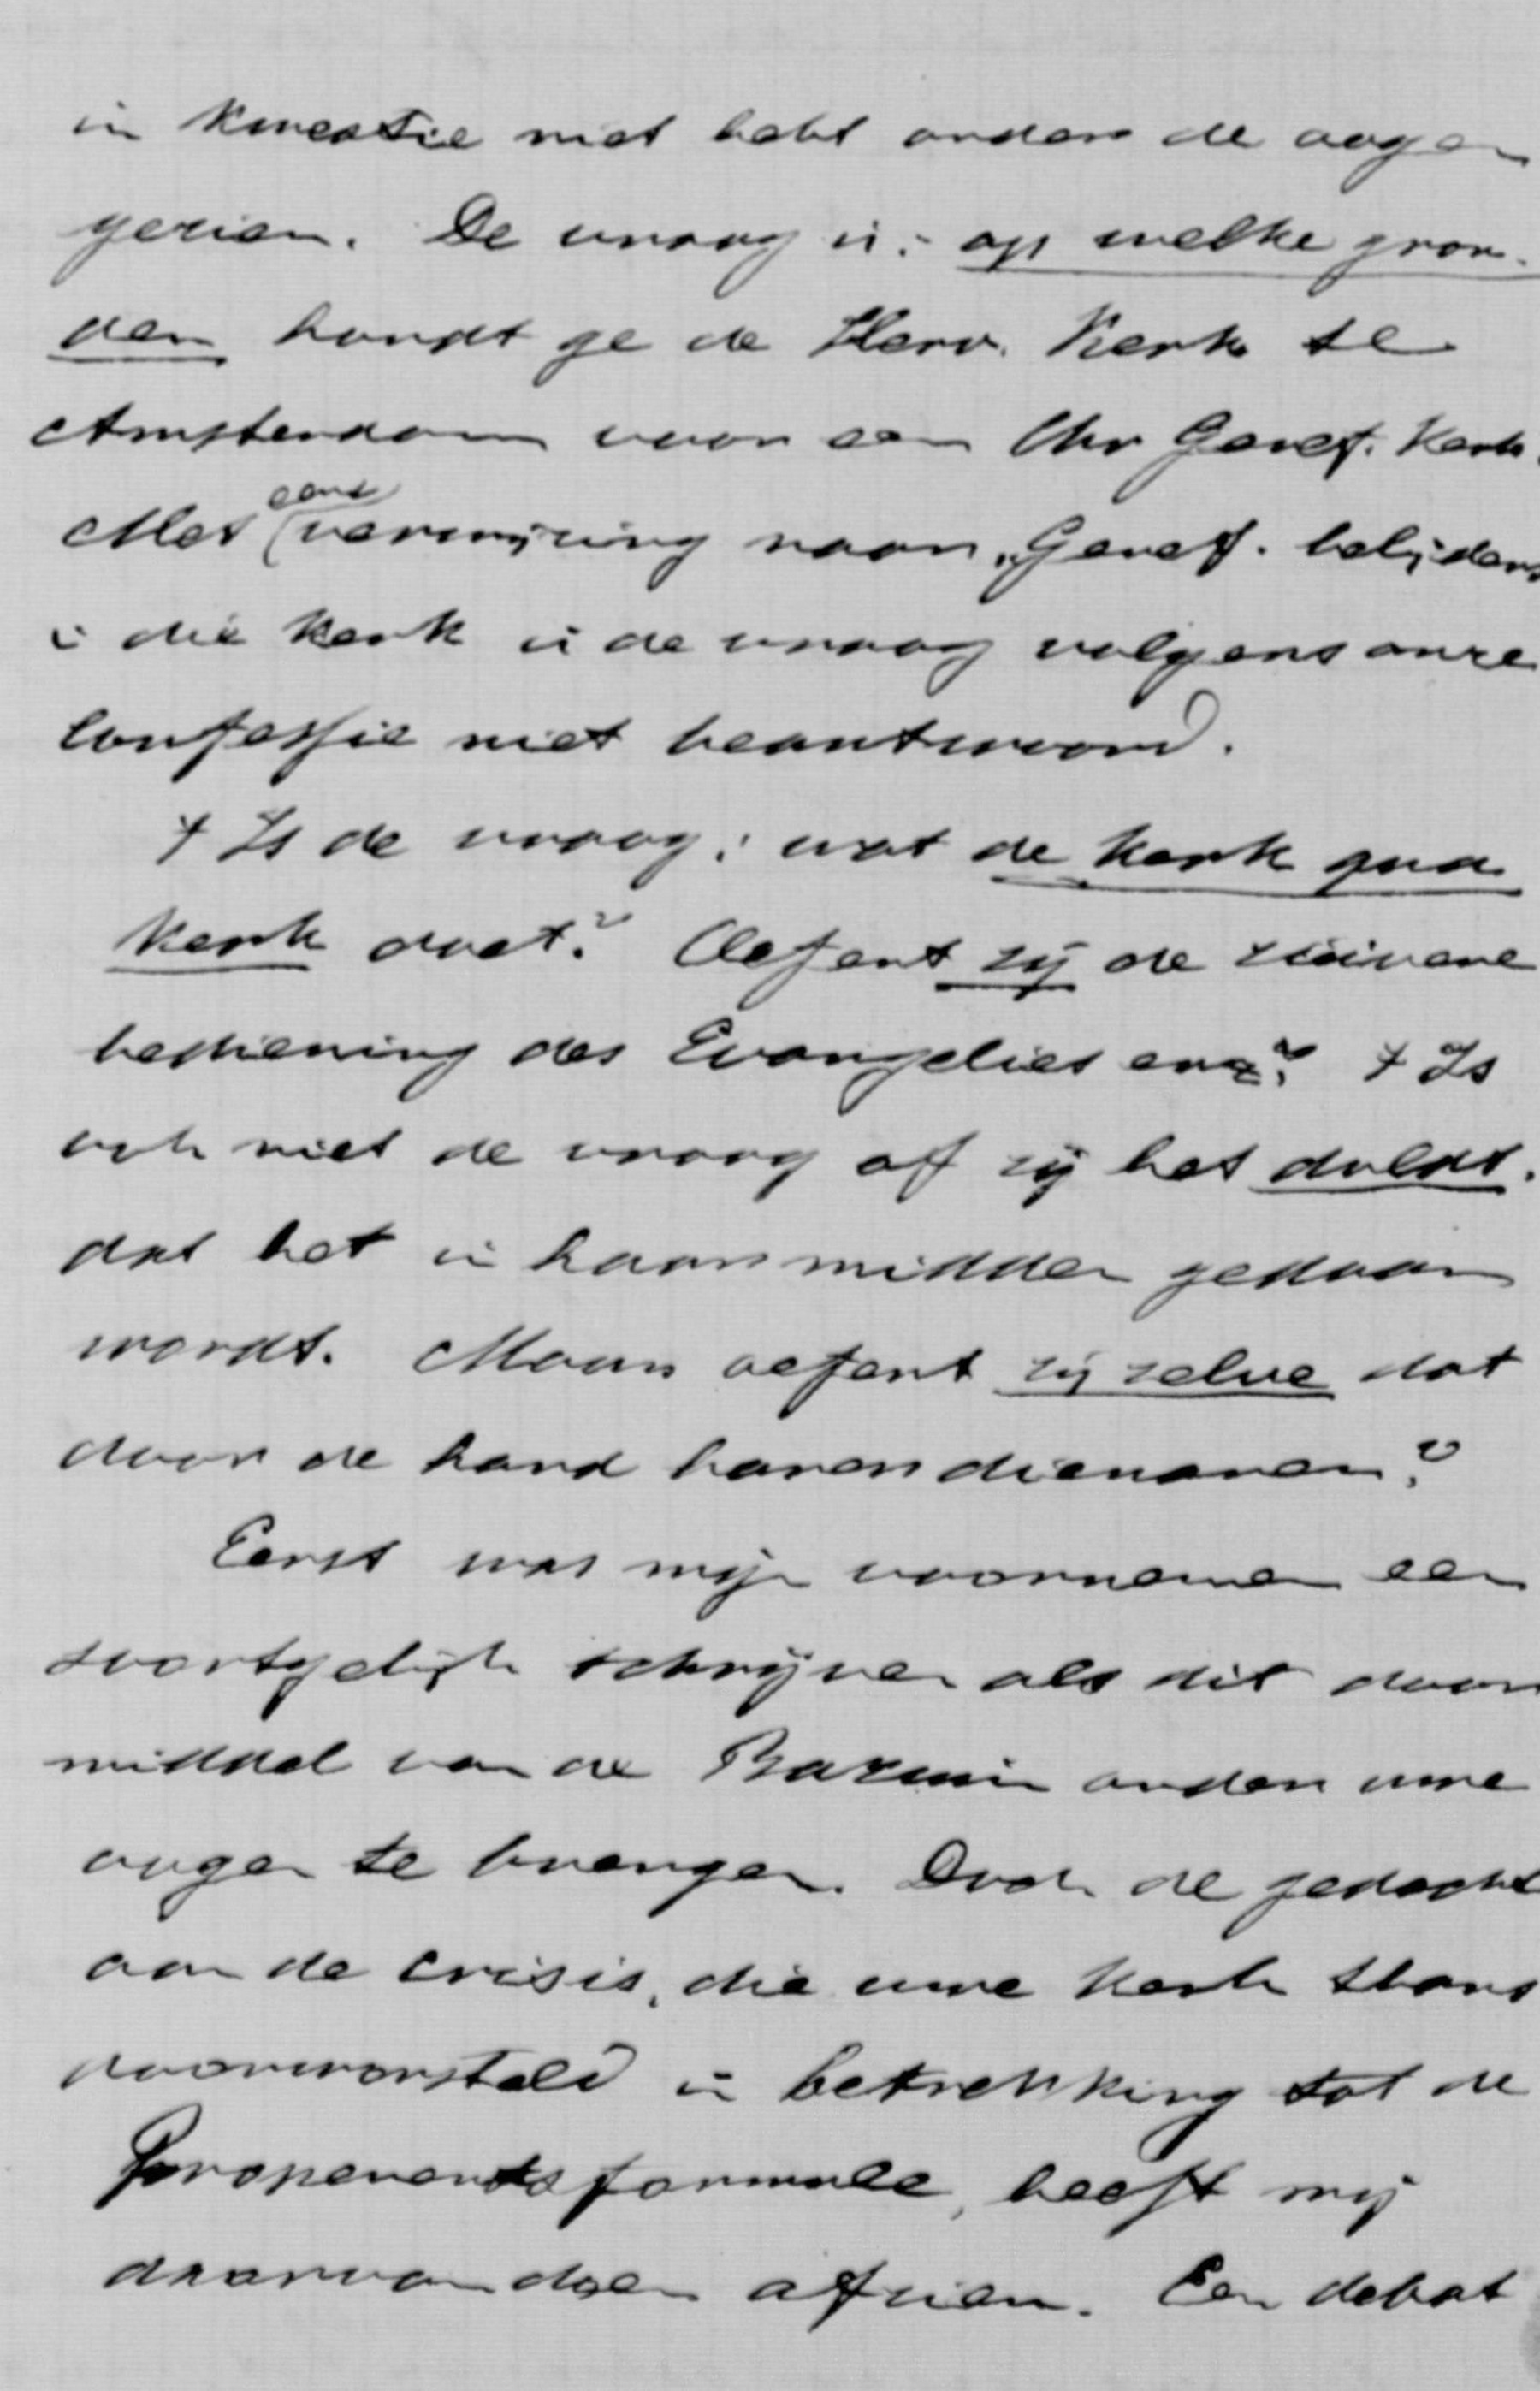 in kwestie niet hebt onder de oogen
gezien. De vraag is: op welke gron-
den houdt ge de Herv. Kerk te
Amsterdam voor een Chr Geref. Kerk.
Met eene verwijzing naar "Geref. belijders
in die Kerk is de vraag volgens onze
Confessie niet beantwoord.
't Is de vraag: wat de Kerk qua
Kerk doet? Oefent zij de zuivere
bediening des Evangelies enz? 't Is
ook niet de vraag of zij het duldt.
dat het in haar midden gedaan
wordt. Maar oefent zij zelve dat
door de hand harer dienaren?
Eerst was mijn voornemen een
soortgelijk schrijven als dit door
middel van de Bazuin onder uwe
oogen te brengen. Doch de gedachte
aan de crisis, die uwe Kerk thans
doorworsteld in betrekking tot de
Proponentsformule, heeft mij
daarvan doen afzien. Een debat